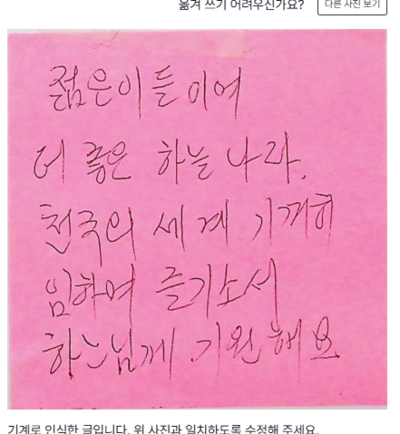 옮겨 쓰기 어려우신가요? 다른 사진 보기
젊은이들이여
더 좋은 하늘나라.
천국의 세계 기꺼히
임하여 즐기소서
하느님께 기원해요
기계로 인식한 글입니다. 위 사진과 일치하도록 수정해 주세요.